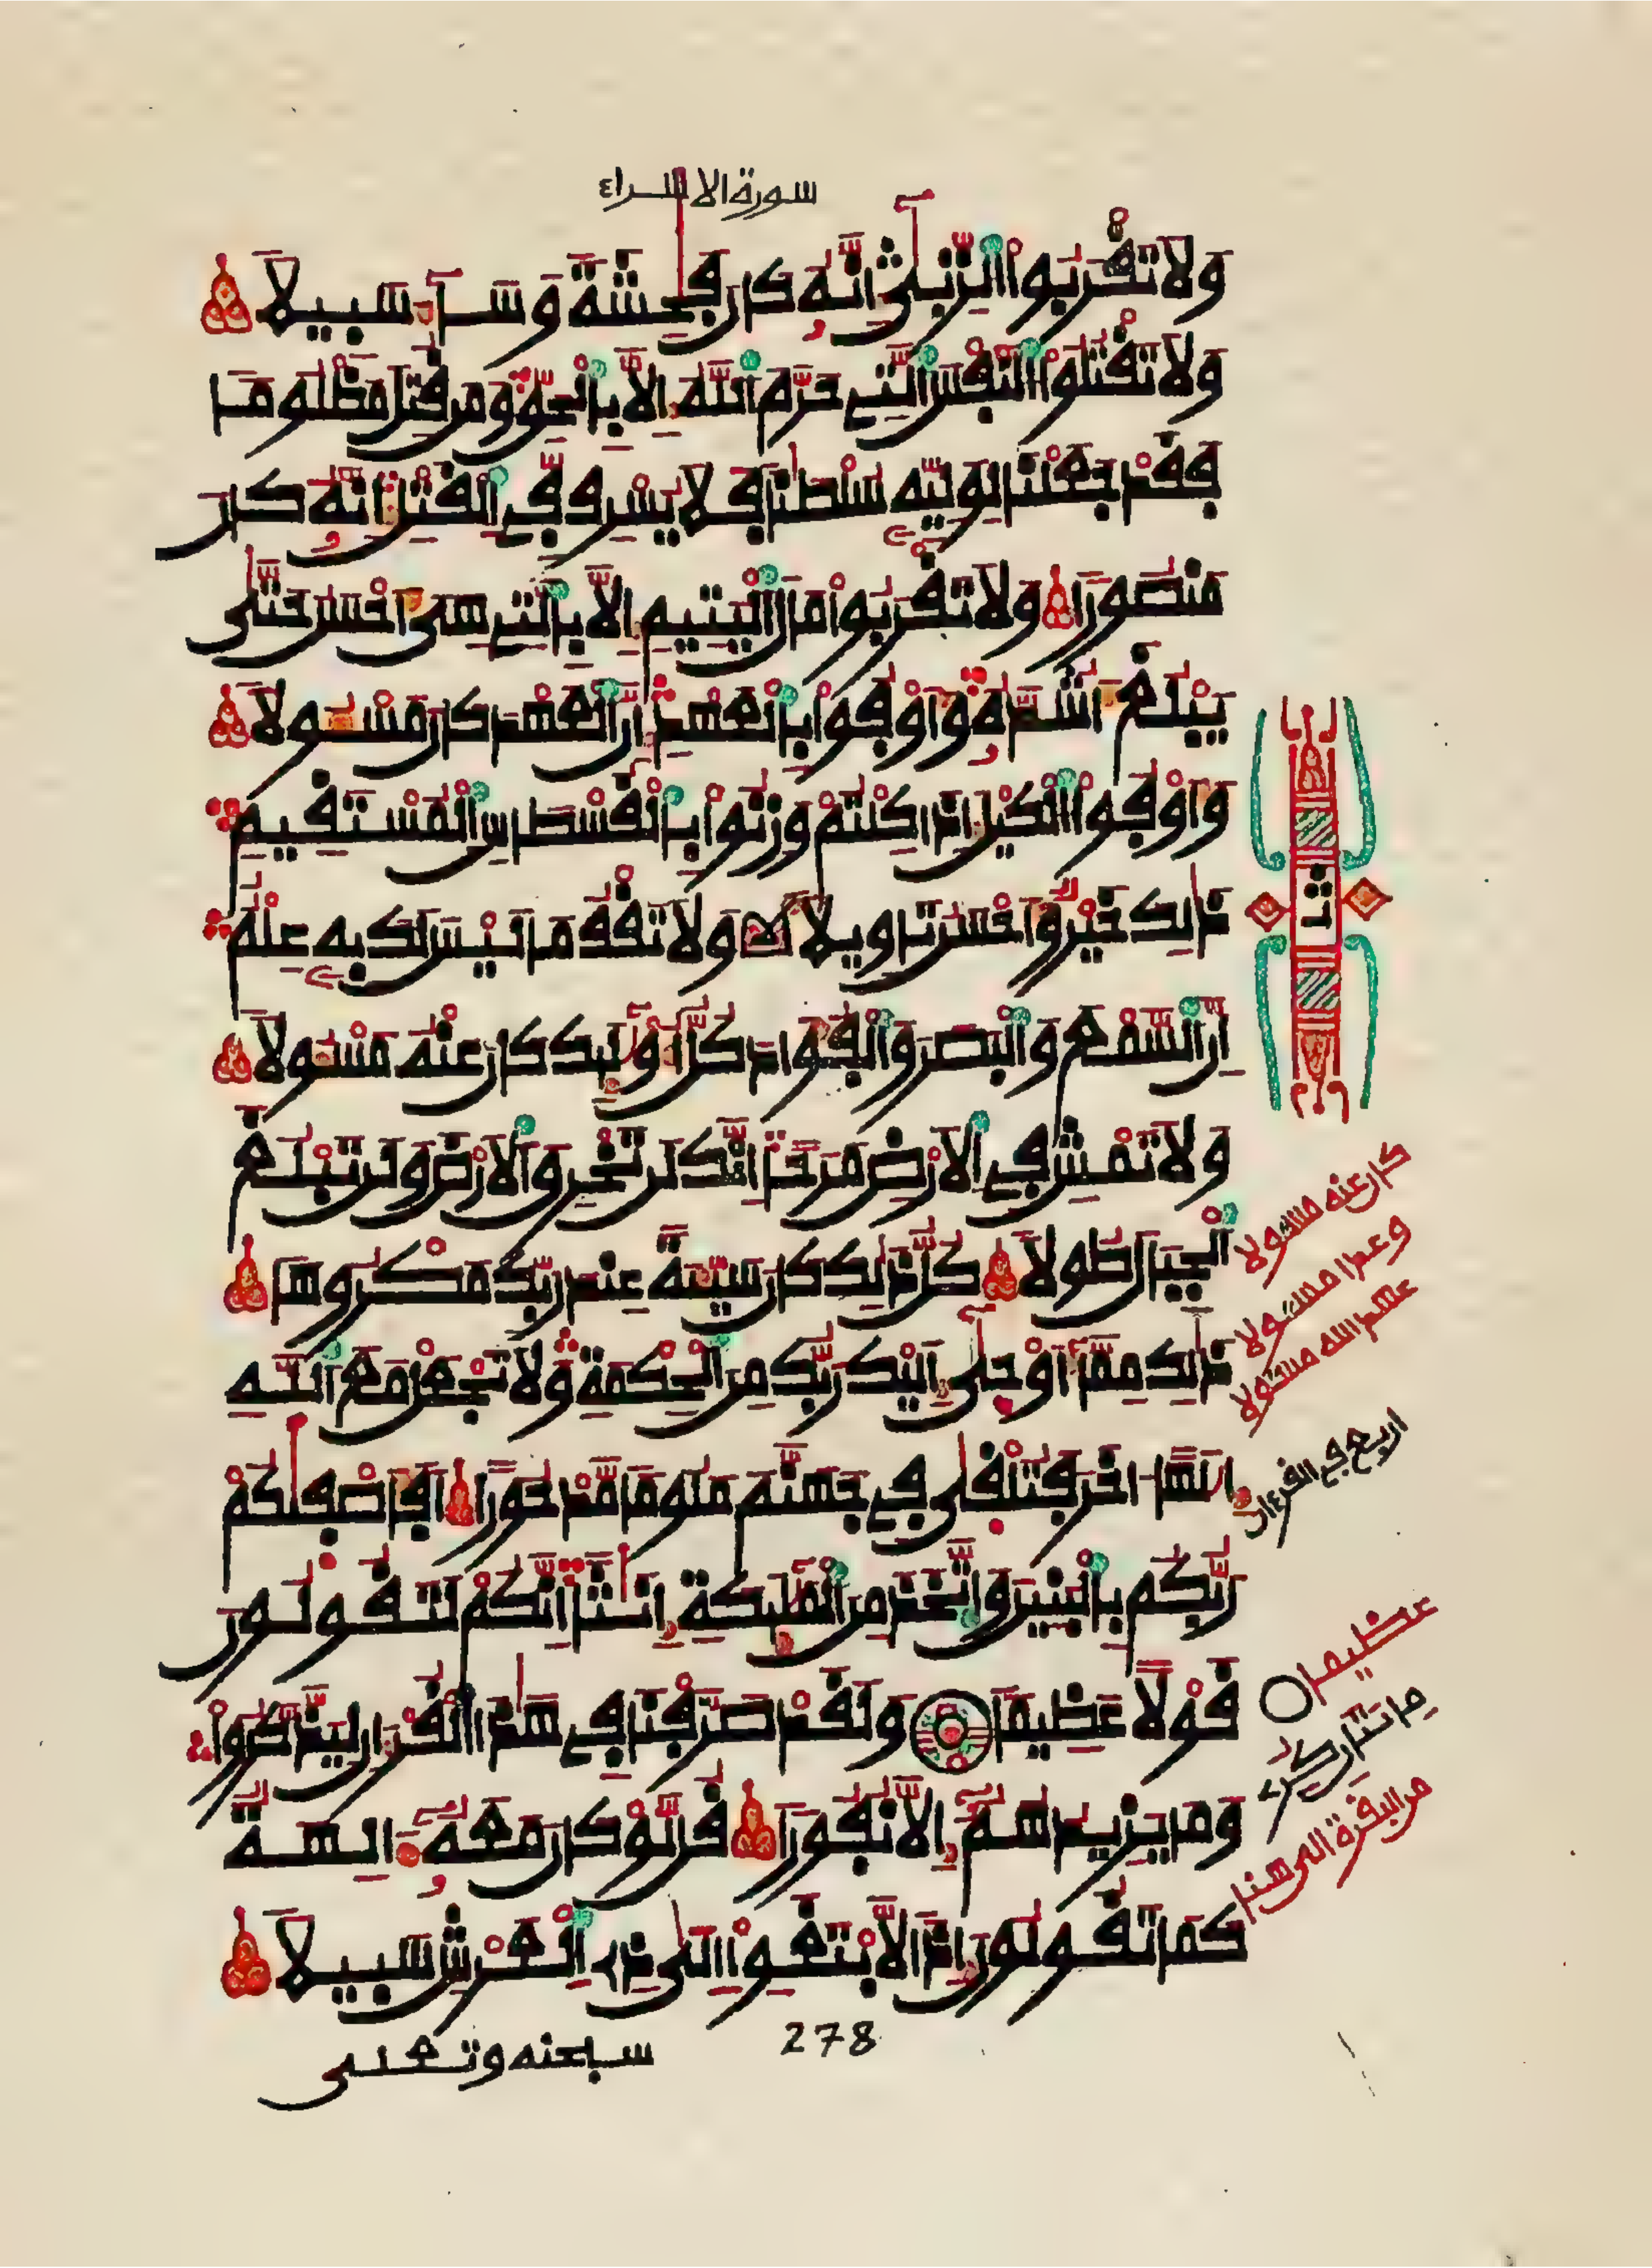 سورة الاسراء
ولا تقربوا الزنى إنه كان فحشة وساء سبيلا
ولا تقتلوا النفس التي حرم الله إلا بالحق ومن قتل مظلوما
فقد جعلنا لوليه سلطنا فلا يسرف في القتل إنه كان
منصورا ولا تقربوا مال اليتيم إلا بالتي هي أحسن حتى
يبلغ أشده وأوفوا بالعهد إن العهد كان مسـولا
وأوفوا الكيل إذا كلتم وزنوا بالقسطاس المستقيم
ذلك خير وأحسن تاويلا ولا تقف ما ليس لك به علم
إن السمع والبصر والفؤاد كل أولئك كان عنه مسـولا
ولا تمش في الأرض مرحا إنك لن تخرق الأرض ولن تبلغ
الجبال طولا كل ذلك كان سيئة عند ربك مكروها
ذلك مما أوحى إليك ربك من الحكمة ولا تجعل مع الله
إلها اخر فتلقى في جهنم ملوما مدحورا أفأصفيكم
ربكم بالبنين واتخذ من المليكة إنثا إنكم لتقولون
قولا عظيما ولقد صرفنا في هذا القرءان ليذكروا
وما يزيدهم إلا نفورا قل لو كان معه ءالهة
كما تقولون إذا لابتغوا إلى ذي العرش سبيلا
سبحنه وتعلى
278
ثمن
كان عنه مسـولا
وعدا مسـولا
عهد الله مسـولا
اربع في القرءان
عظيما
من البقرة الى هنا